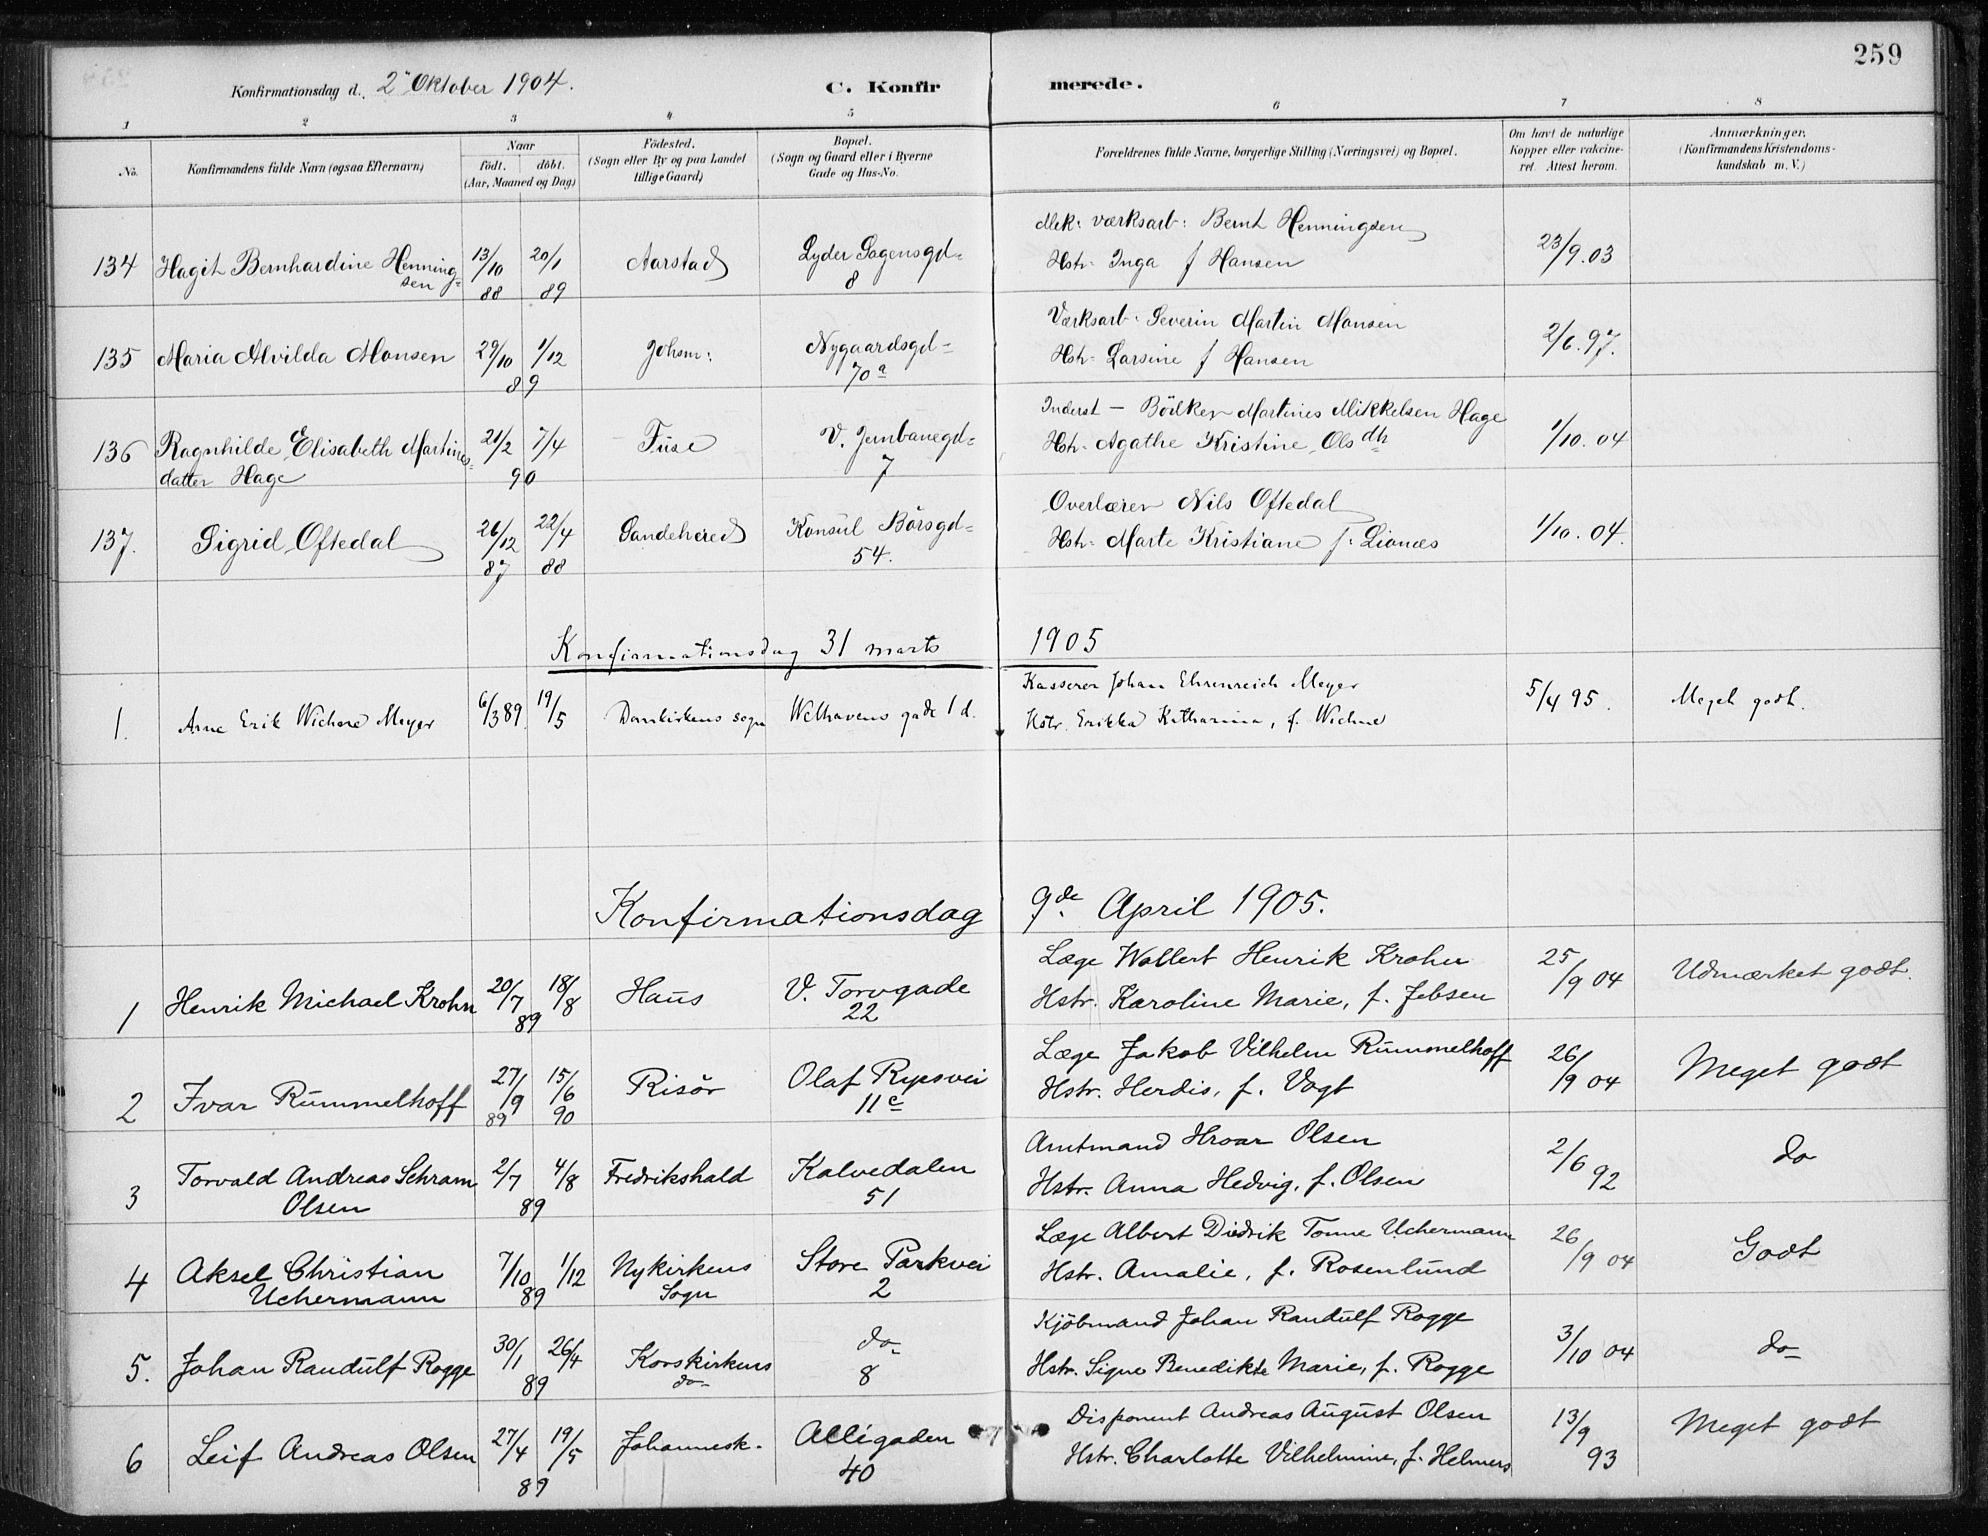 259
Konfirmationsdag d. 2 Oktober 1904. C. Konfir merede.
1 2 3 4 5 6 7 8
No. Konfirmandens fulde Navn (ogsaa Efternavn) Naar födt. döbt. (Aar, Maaned og Dag) Födested. (Sogn eller By og paa Landet tillige Gaard) Bopæl. (Sogn og Gaard eller i Byerne Gade og Hus-No. Forældrenes fulde Navne, borgerlige Stilling (Næringsvei) og Bopæl. Om havt de naturlige Kopper eller vakcineret. Attest herom. Anmærkninger. (Konfirmandens Kristendomskundskab m. V.)
Mek: værksarb: Bernt Henningsen
134 Hagit Bernhardine Henning= 13/10 20/1 Aarstad Lyder Sagensgd= Hstr. Inga f Hansen 23/9.03
sen 88 89 8
Værksarb: Severin Martin Monsen
135 Maria Alvilda Monsen 29/10 1/12 Johsm: Nygaardsgd= Hstr= Larsine f Hansen 2/6.97.
89 70a
Inderst — Bödker Martines Mikkelsen Hage
136 Ragnhilde Elisabeth Martines= 21/2 7/4 Fuse V. Jernbanegd= Hstr. Agathe Kristine Olsdtr 1/10.04
datter Hage 90 7
Overlærer Nils Oftedal
137. Sigrid Oftedal 26/12 22/4 Sandehered Konsul Börsgd= Hstr= Marte Kristiane f. Lionæs 1/10.04.
87 88 54.
Konfirmationsdag 31 marts 1905
Kasserer Johan Ehrenreich Meyer
1. Arne Erik Wichne Meyer 6/3 89. 19/5 Domkirkens sogn Welhavens gade 1 d. Hstr. Erikka Katharina, f. Wichne 5/4 95. Meget godt.
Konfirmationsdag 9de April 1905.
Læge Wollert Henrik Krohn
1 Henrik Michael Krohn 20/7 18/8 Haus V. Torvgade Hstr. Karoline Marie, f. Jebsen 25/9 04 Udmærket godt.
89 22
Læge Jakob Vilhelm Rummelhoff
2 Ivar Rummelhoff 27/9 15/6 Risör Olaf Ryesvei Hstr. Herdis, f. Vogt 26/9 04 Meget godt
89 90 11c
Amtmand Hroar Olsen
3 Torvald Andreas Schram 2/7 4/8 Fredrikshald Kalvedalen Hstr. Anna Hedvig, f. Olsen 2/6 92 do
Olsen 89 51
Læge Albert Diedrik Tonne Uchermann
4 Aksel Christian 7/10 1/12 Nykirkens Store Parkvei Hstr. Amalie, f. Rosenlund 26/9 04 Godt
Uchermann 89 Sogn 2
Kjöbmand Johan Randulf Rogge
5. Johan Randulf Rogge 30/1 26/4 Korskirkens do Hstr. Signe Benedikte Marie, f. Rogge 3/10 04 do
89 do 8
Disponent Andreas August Olsen
6 Leif Andreas Olsen 27/4 19/5 Johannesk. Allégaden Hstr. Charlotte Vilhelmine, f. Helmers 13/9 93 Meget godt
89 40